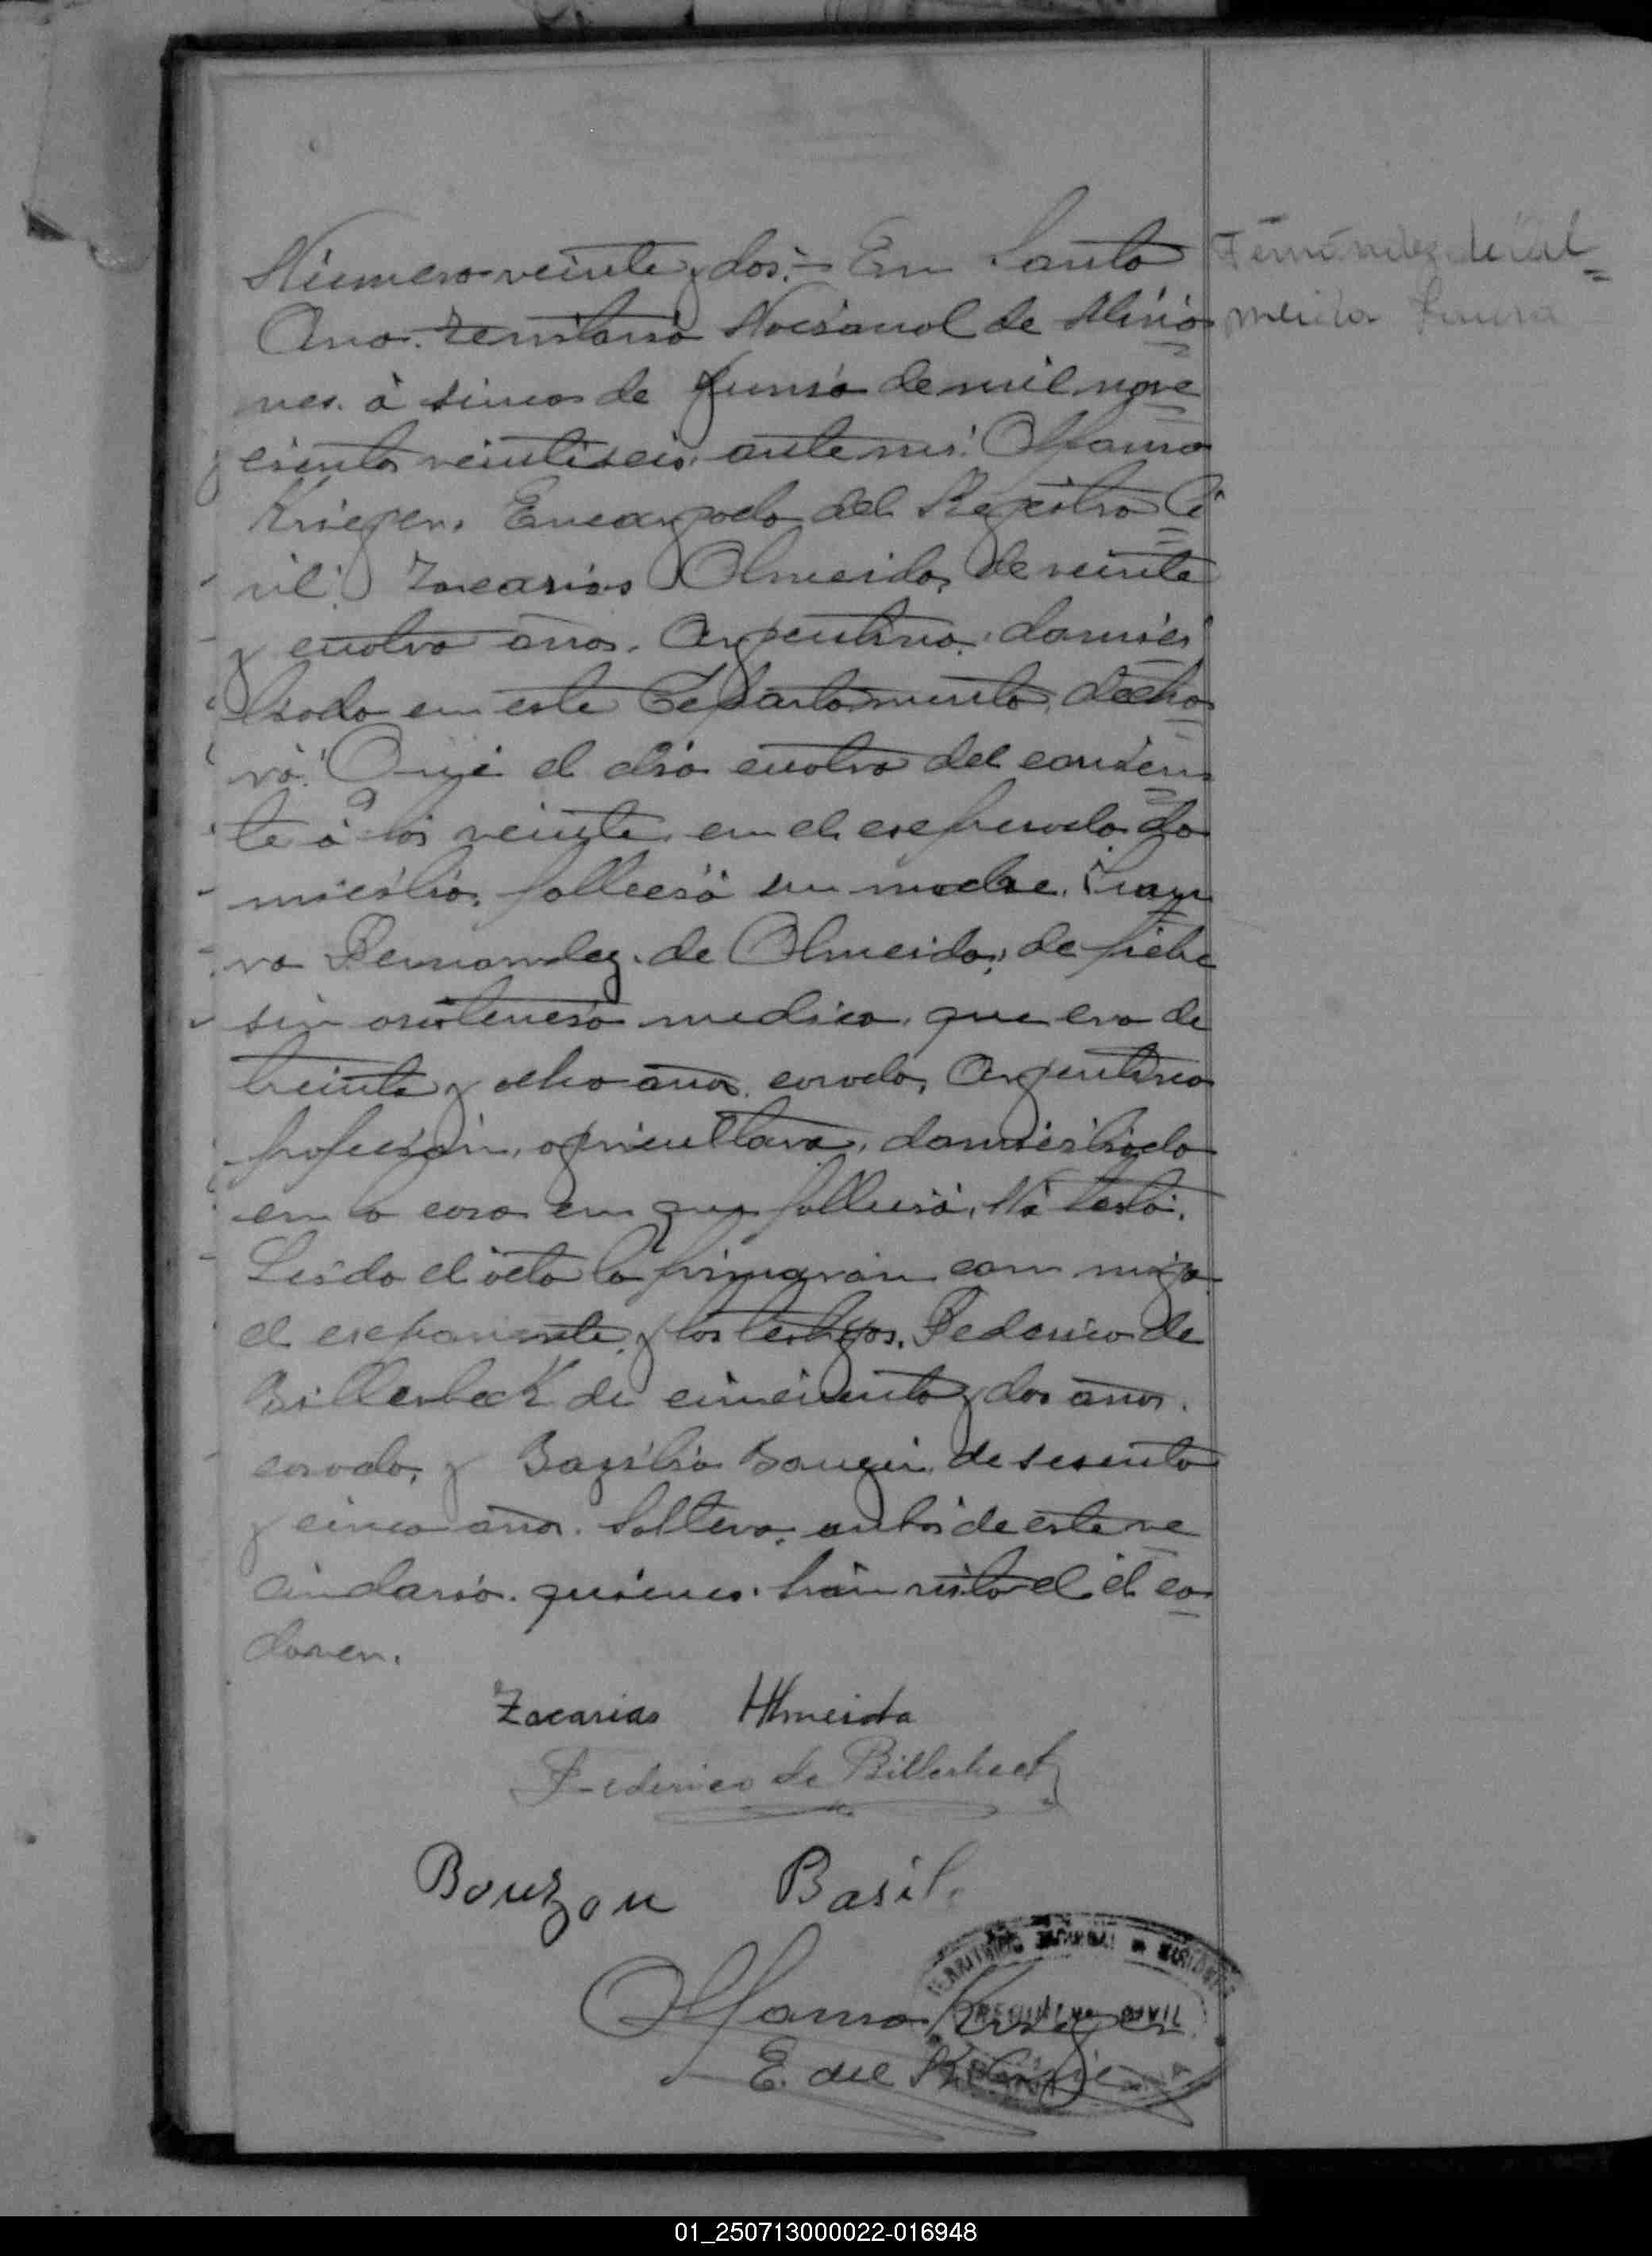 Número veinte y dos.- En Santa
Ana. Territorio Nacional de Misio
nes. á sinco de Junio de mil nove
cientos veintiseis, ante mí. Alfonso
Krieger. Encargado del Registro Ci
vil. Zacarias Almeida, de veinte
y cuatro años. Argentino. domici
liado en este Departamento, decla
ró: Que el dia cuatro del corrien
te á las veinte, en el espresado do
micilio, falleció su madre. Lau
ra Fernandez de Almeida, de fiebre
sin asistencia medica, que era de
treinta y ocho años, casada, Argentina
profesión, agricultora, domiciliada
en la casa en que falleció. Nó testó.
Leida el acta la firmaron con migo
el exponente, y los testigos. Federico de
Billerbeck de cincuenta y dos años.
casado, y Bazilio Bauzin, de sesenta
y cinco años. Soltero, ambos de este ve
cindario. quienes han visto el el ca
daver.
Fernández de Al=
meida Laura
Zacarias Almeida
Federico de Billerbeck
Bouzon Basil.
Alfonso Krieger
E. del R. Civil
TERRITORIO NACIONAL DE MISIONES
REGISTRO CIVIL
01_250713000022-016948